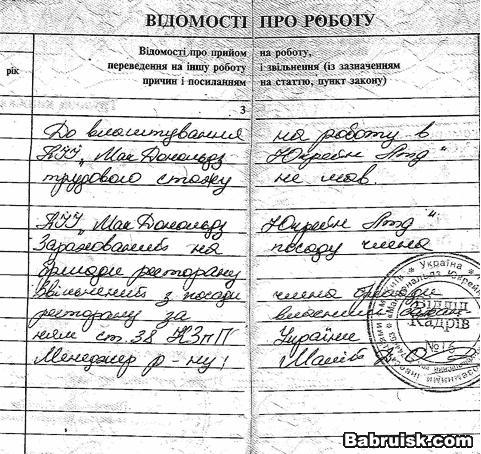 ВІДОМОСТІ ПРО РОБОТУ
рік
Відомості про прийом на роботу,
переведення на іншу роботу і звільнення (із зазначенням
причин і посиланням на статтю, пункт закону)
3
До влаштування на роботу в
„Мак Дональдз Юкрейн Лтд“
трудового стажу не мав.
„Мак Дональдз Юкрейн Лтд“
Зарахований на посаду члена
бригади ресторану
Звільнений з посади члена бригади
ресторану за власним
ст. 38 КЗпП України
Менеджер р-ну:
Україна
Відділ
Кадрів
№ 16
Babruisk.com